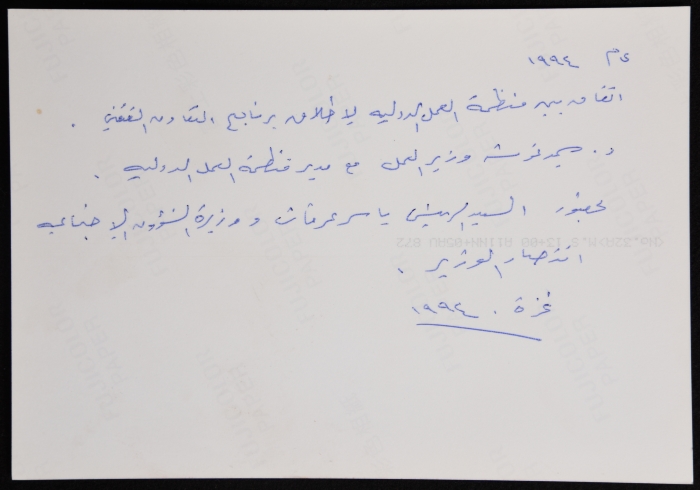 عام ١٩٩٤
اتفاق بين منظمة العمل الدولية لإطلاق برنامج التعاون التقني .
د. سمير غوشه وزير العمل مع مدير منظمة العمل الدولية .
بحضور السيد الرئيس ياسر عرفات و وزيرة الشؤون الإجتماعية
انتصار الوزير .
غزة . ١٩٩٤